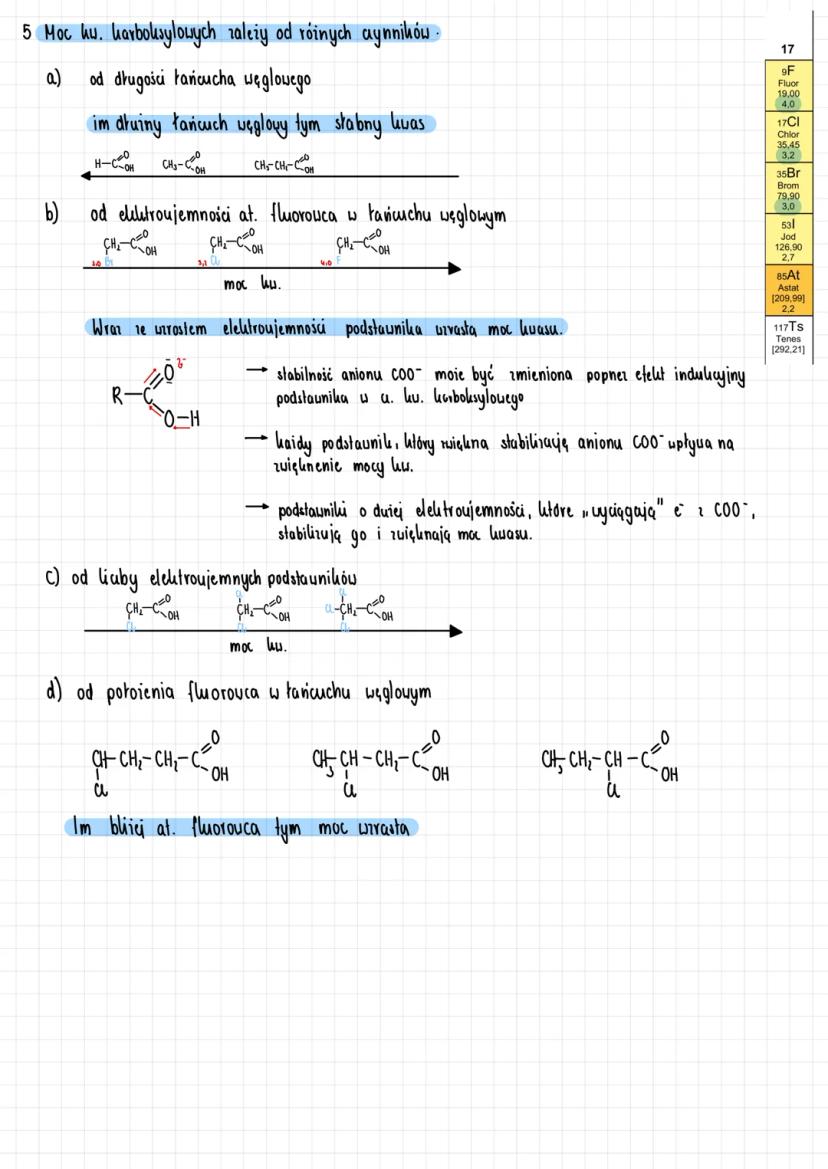 5 Moc kw. karboksylowych zależy od różnych czynników.
a) od długości łańcucha węglowego
im dłuższy łańcuch węglowy tym słabszy kwas
H-C=O OH CH₃-C=O OH CH₃-CH₂-C=O OH
b) od elektroujemności at. fluorowca w łańcuchu węglowym
CH₂-C=O OH CH₂-C=O OH CH₂-C=O OH
3,0 Br 3,2 Cl 4,0 F
moc kw.
Wraz ze wzrostem elektroujemności podstawnika wzrasta moc kwasu.
R-C O δ- O-H
→ stabilność anionu COO⁻ może być zmieniona poprzez efekt indukcyjny
podstawnika w cz. kw. karboksylowego
→ każdy podstawnik, który zwiększa stabilizację anionu COO⁻ wpływa na
zwiększenie mocy kw.
→ podstawniki o dużej elektroujemności, które „wyciągają" e⁻ z COO⁻,
stabilizują go i zwiększają moc kwasu.
c) od liczby elektroujemnych podstawników
Cl Cl
CH₂-C=O OH CH₂-C=O OH Cl-CH₂-C=O OH
Cl Cl Cl
moc kw.
d) od położenia fluorowca w łańcuchu węglowym
CH-CH₂-CH₂-C=O OH CH₃-CH-CH₂-C=O OH CH₃-CH₂-CH-C=O OH
Cl Cl Cl
Im bliżej at. fluorowca tym moc wzrasta
17
9F
Fluor
19,00
4,0
17Cl
Chlor
35,45
3,2
35Br
Brom
79,90
3,0
53I
Jod
126,90
2,7
85At
Astat
[209,99]
2,2
117Ts
Tenes
[292,21]